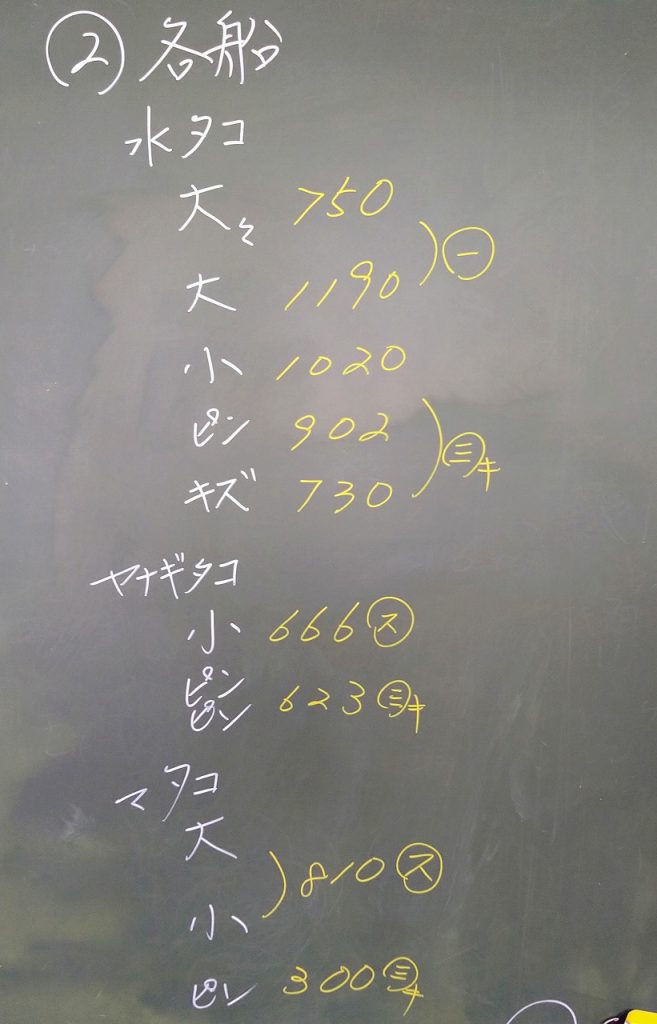 ② 各船
水タコ
大々 750
大 1190 ㊀
小 1020
ピン 902
キズ 730 ㊂キ
ヤナギタコ
小 666 ㋜
ピンピン 623 ㊂キ
マタコ
大
小 810 ㋜
ピン 300 ㊂キ